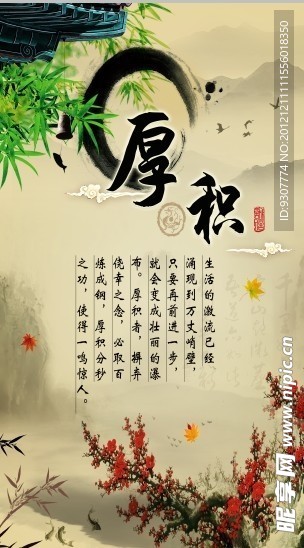 厚积
生活的激流已经
涌现到万丈峭壁，
只要再前进一步，
就会变成壮丽的瀑
布。厚积者，摒弃
侥幸之念，必取百
炼成钢，厚积分秒
之功，使得一鸣惊人。
昵享网 www.nipic.cn
ID:9307774 NO:20121211111556018350